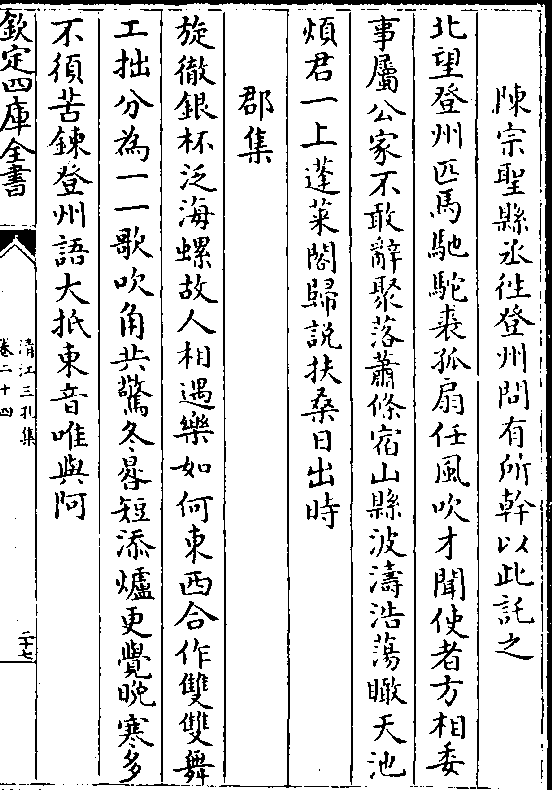 陳宗聖縣丞徃登州問有所幹以此託之
北望登州匹馬馳駝裘孤扇任風吹才聞使者方相委
事屬公家不敢辭聚落蕭條宿山縣波濤浩蕩瞰天池
煩君一上蓬萊閣歸說扶桑日出時
郡集
旋徹銀杯泛海螺故人相遇樂如何東西合作雙雙舞
工拙分為一一歌吹角共驚冬晷短添爐更覺晚寒多
不須苦鍊登州語大抵東音唯與阿
欽定四庫全書
清江三孔集
卷二十四
二十七